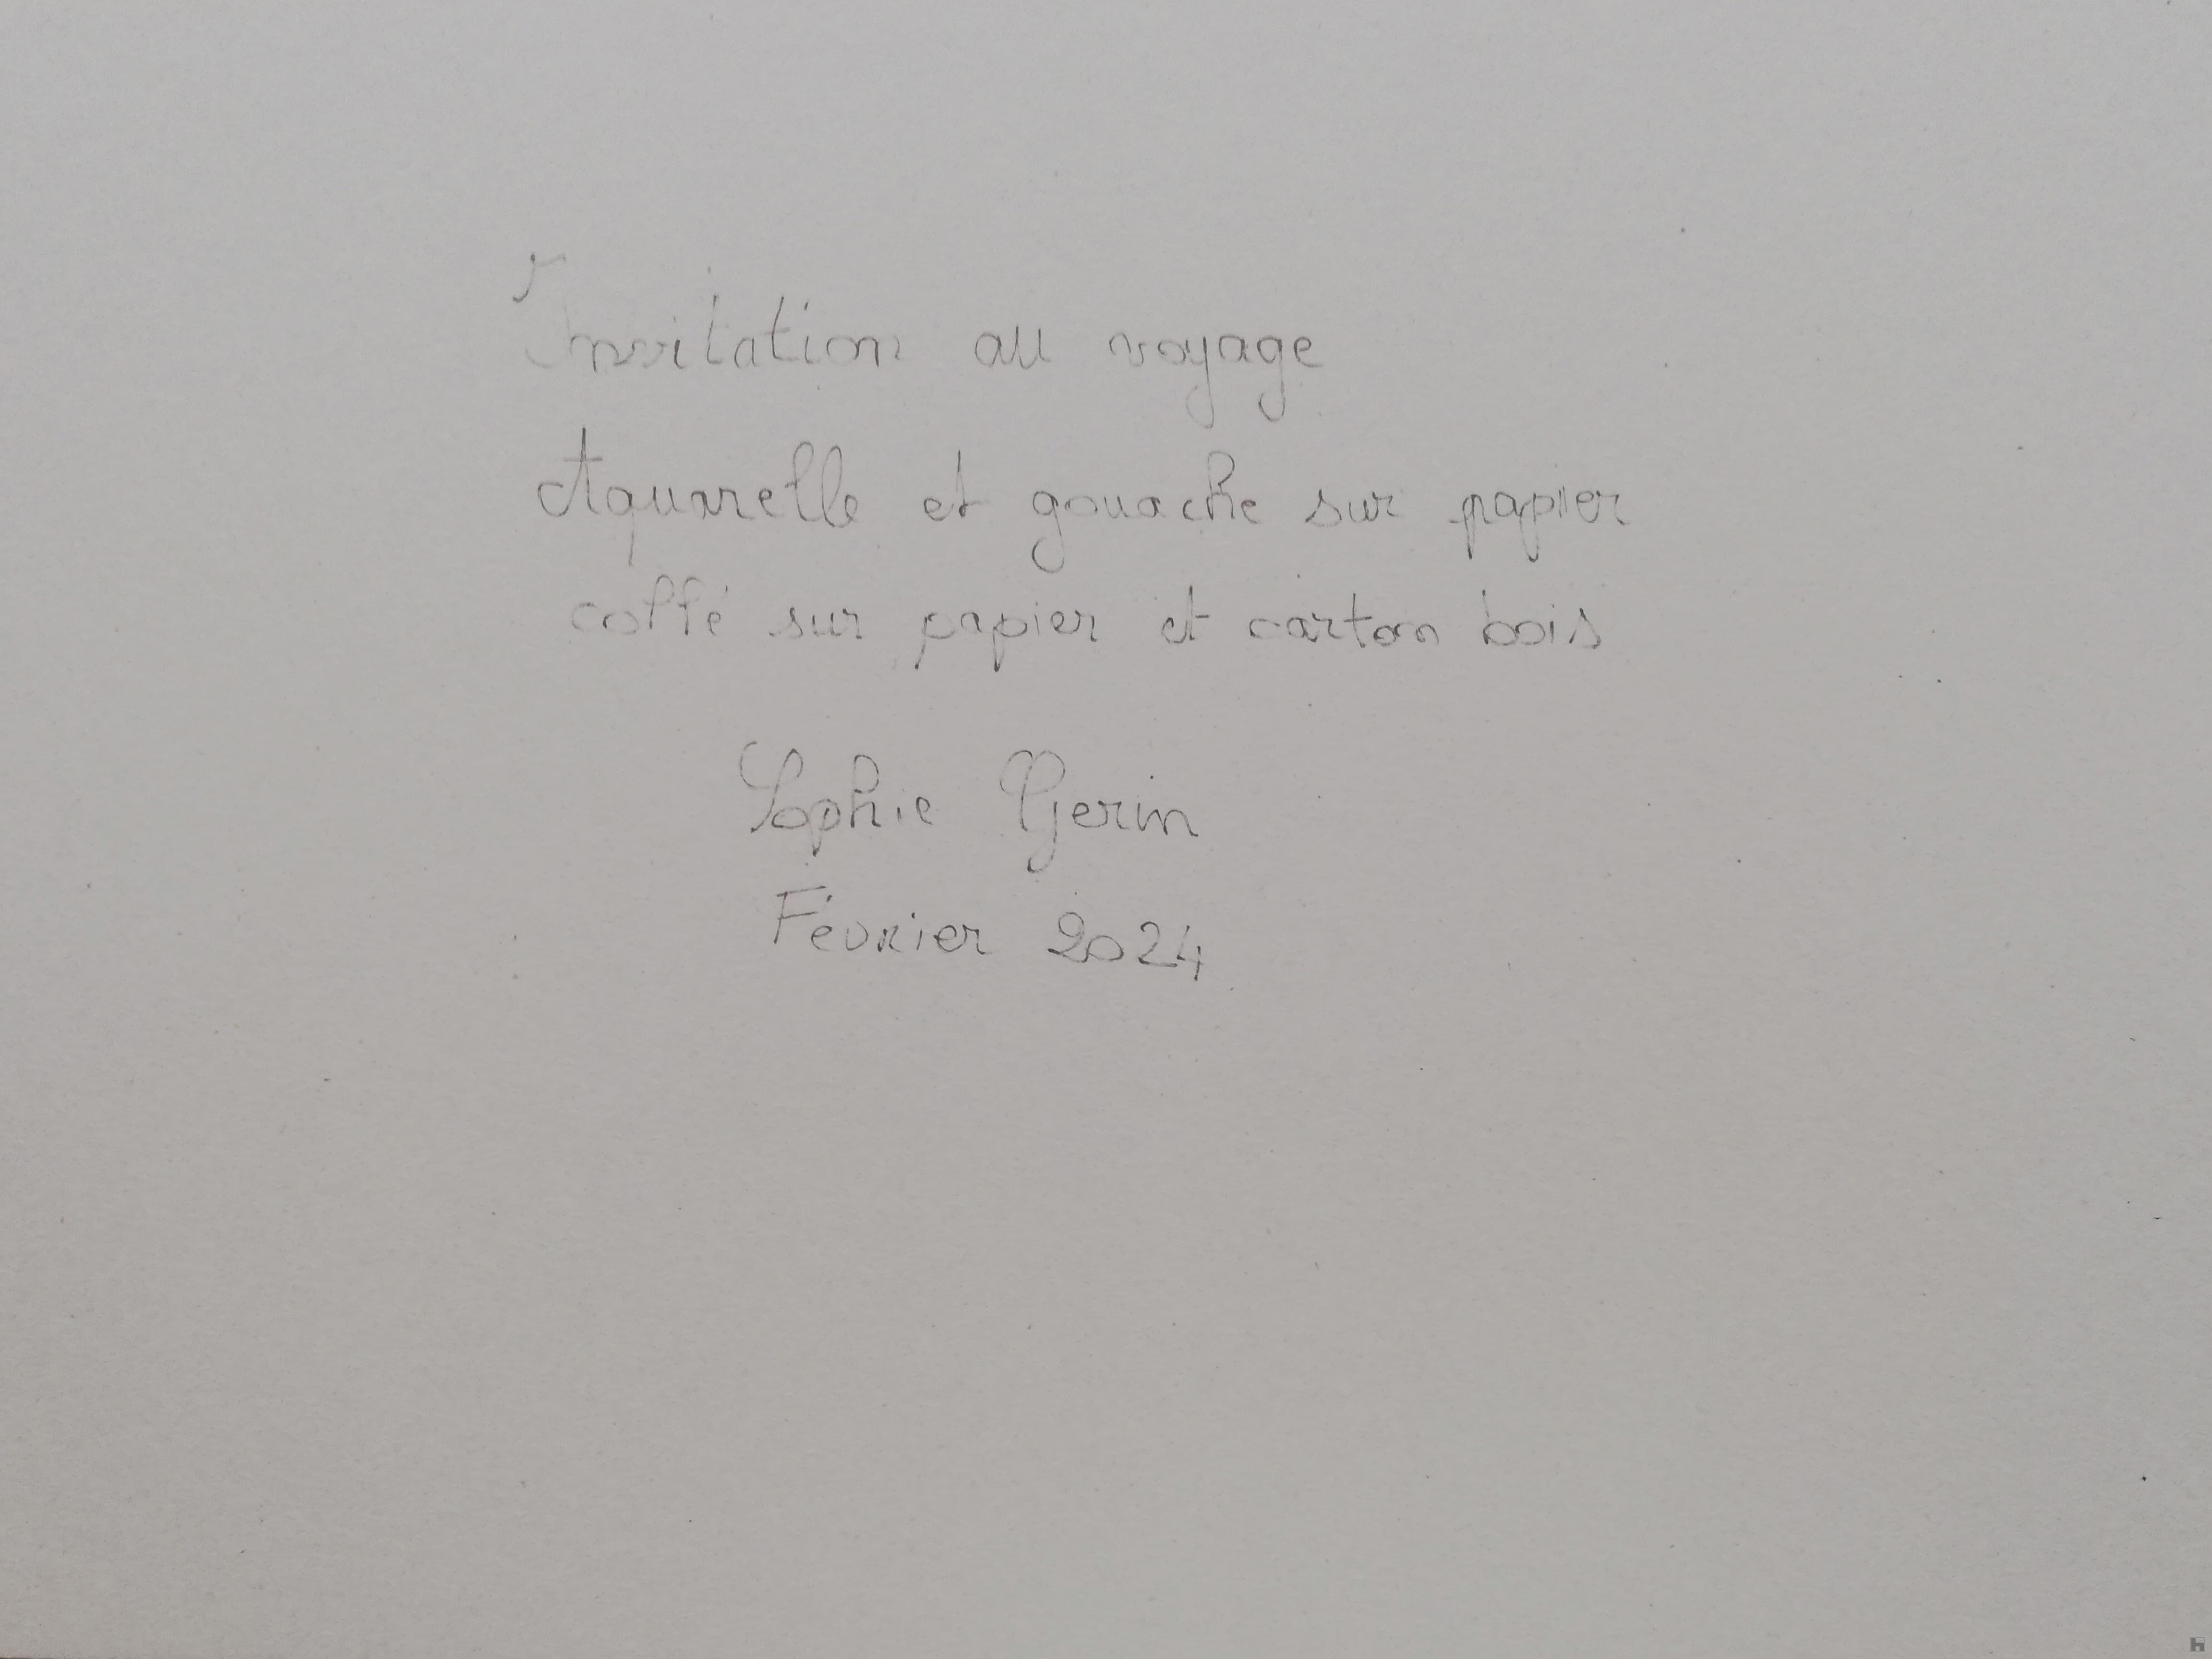 Invitation au voyage
Aquarelle et gouache sur papier
collé sur papier et carton bois
Sophie Gerin
Février 2024
h